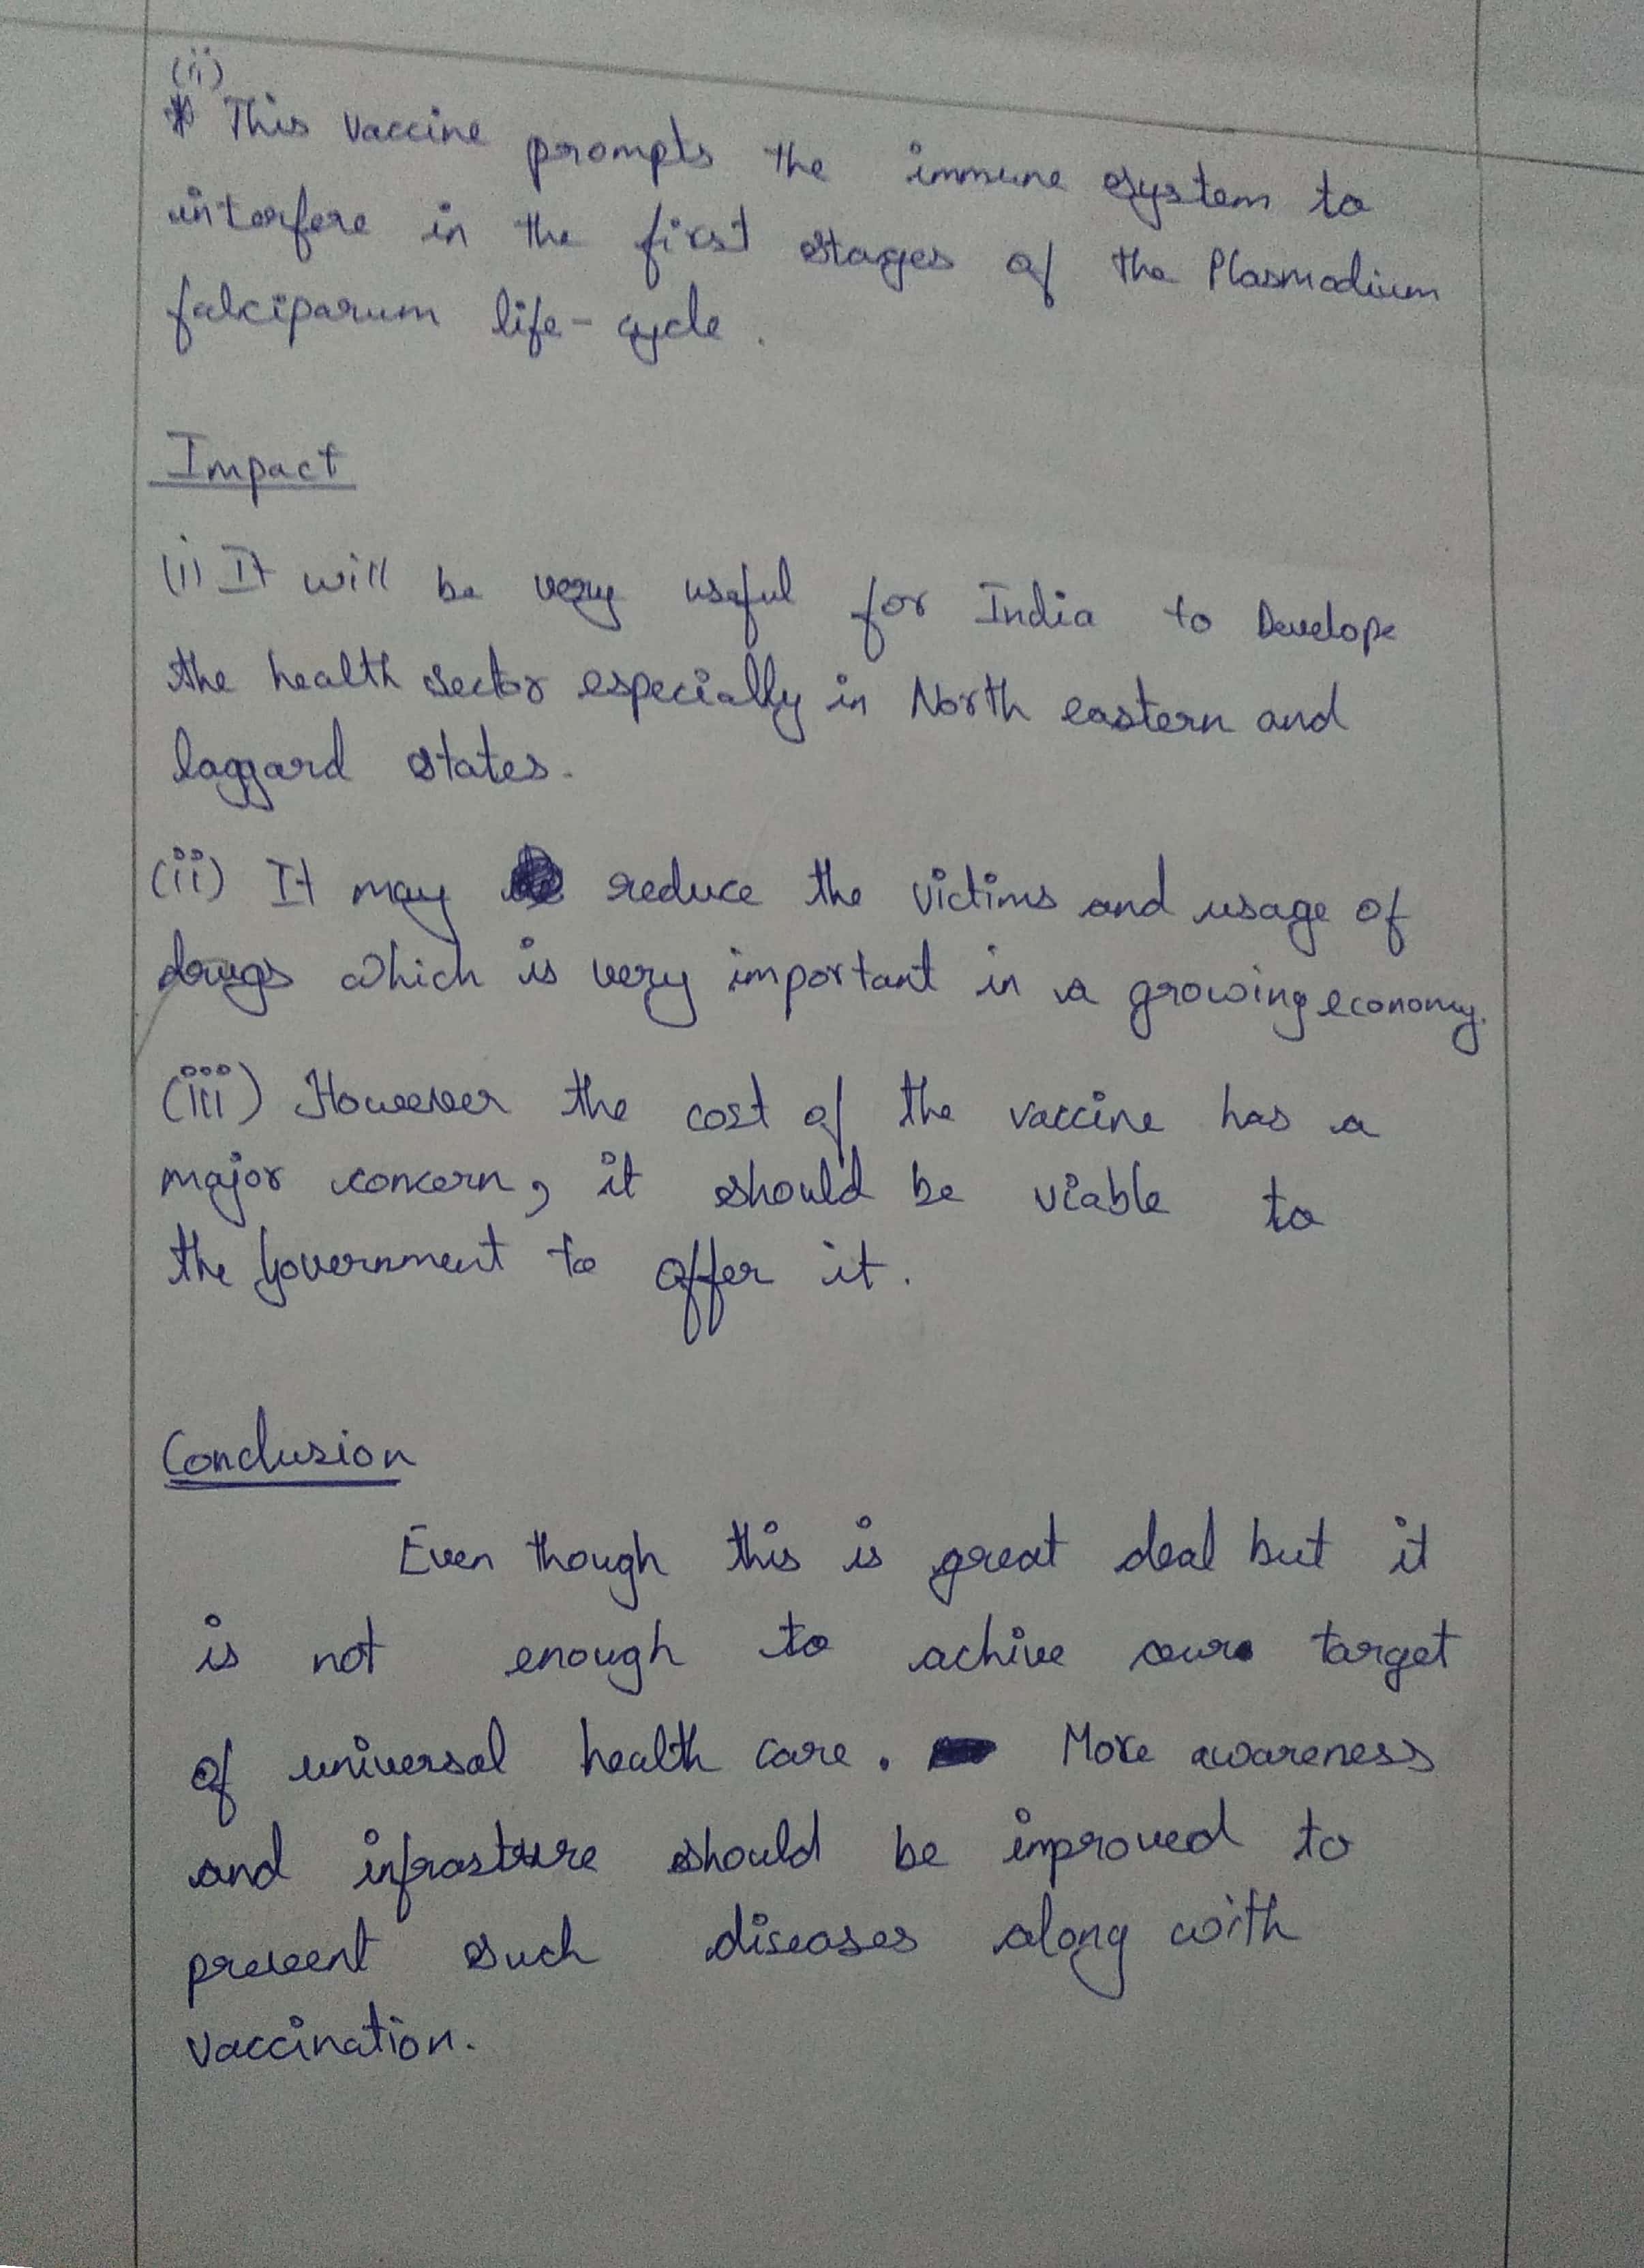 (ii)
This vaccine prompts the immune system to
interfere in the first stages of the Plasmodium
falciparum life-cycle.
Impact
(i) It will be very useful for India to Develope
the health sector especially in North eastern and
laggard states.
(ii) It may reduce the victims and usage of
drugs which is very important in a growing economy.
(iii) However the cost of the vaccine has a
major concern, it should be viable to
the Government to offer it.
Conclusion
Even though this is great deal but it
is not enough to achive our target
of universal health care. More awareness
and infrasture should be improved to
prevent such diseases along with
vaccination.